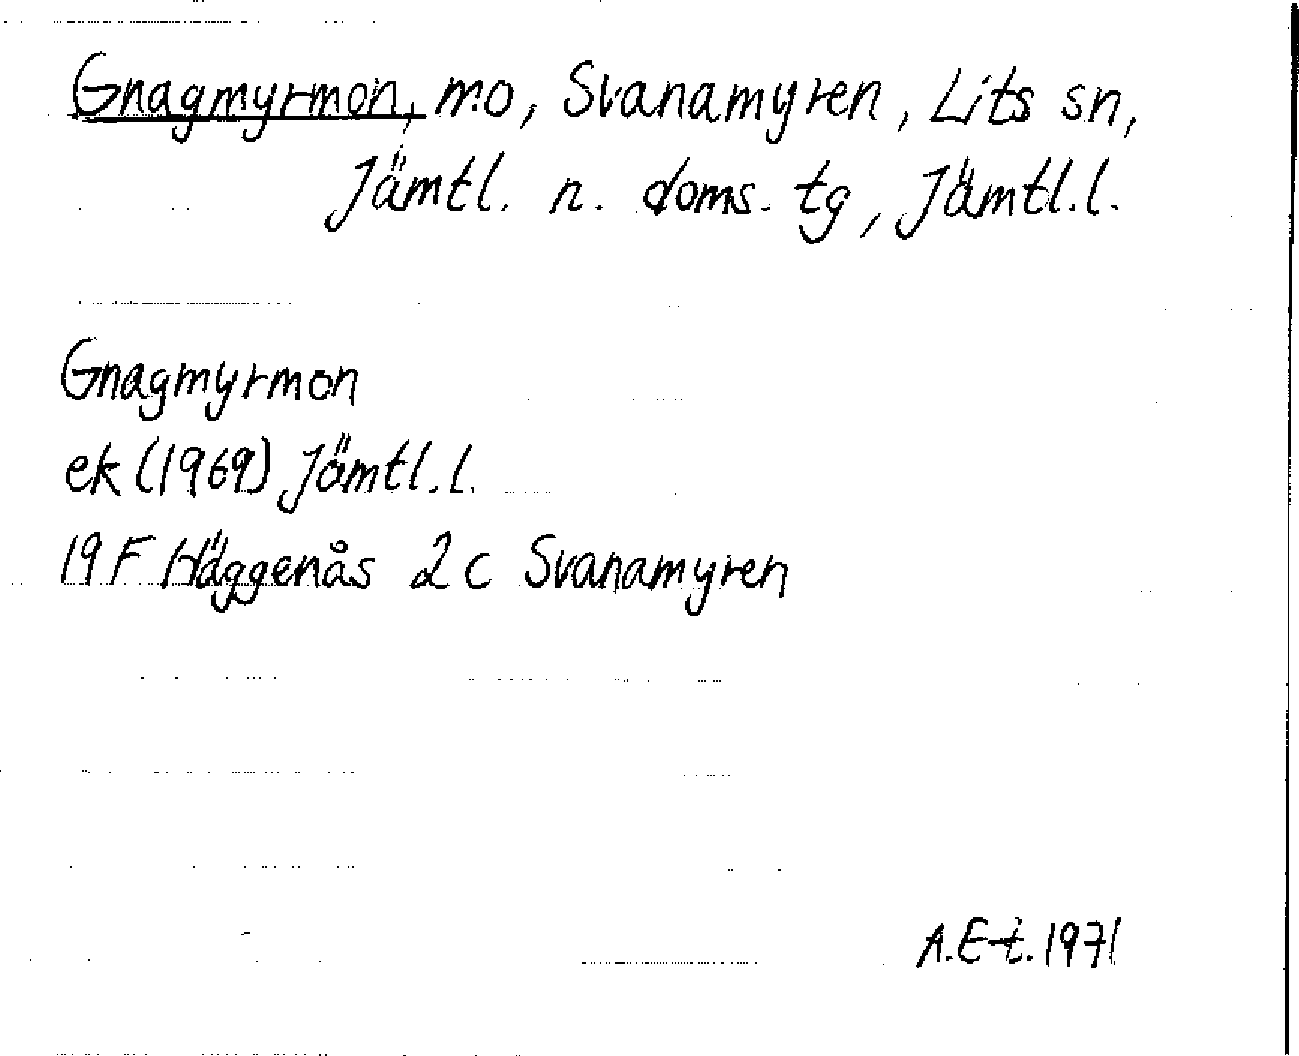 Gnagmyrmon, mo, Svanamyren, Lits sn,
Jämtl. n. doms. tg, Jämtl.l.
Gnagmyrmon
ek (1969) Jämtl.l.
19 F Häggenås 2 c Svanamyren
A.E-t. 1971